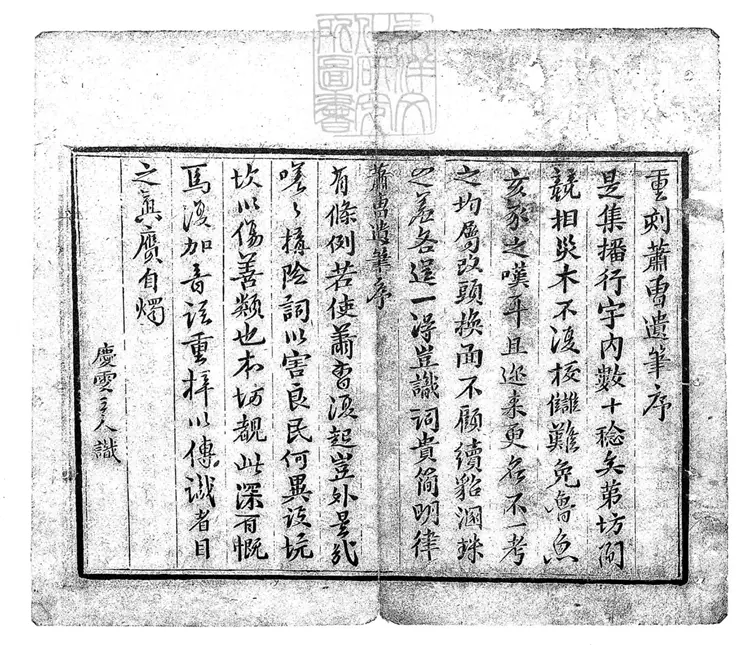 東洋文
化研究
所圖書
重刻蕭曹遺筆序
是集播行宇内數十稔矣第坊間
競相災木不復校讎難免魯魚
亥豕之嘆耳且邇来更名不一考
之均屬改頭換面不顧續貂溷珠
之羞各逞一得豈識詞貴簡明律
蕭曹遺筆序
有條例若使蕭曹復起豈外是哉
嗟〻搆险詞以害良民何異設坑
坎以傷善類也本坊覩此深可慨
焉復加音註重梓以傳識者目
之真贗自燭
慶雲主人識